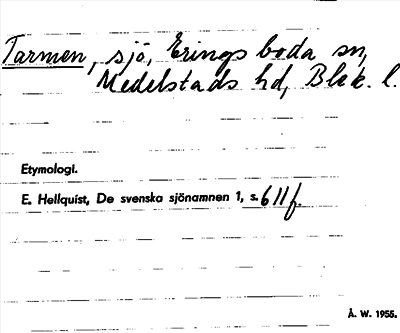 Tarmen, sjö, Eringsboda sn,
Medelstads hd, Blek. l.
Etymologi.
E. Hellquist, De svenska sjönamnen 1, s. 611 f.
Å. W. 1955.